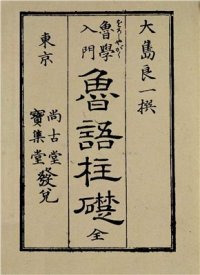 大島良一撰
魯學入門
おろしやがく
魯語柱礎 全
東京
尚古堂
寶集堂
發兌